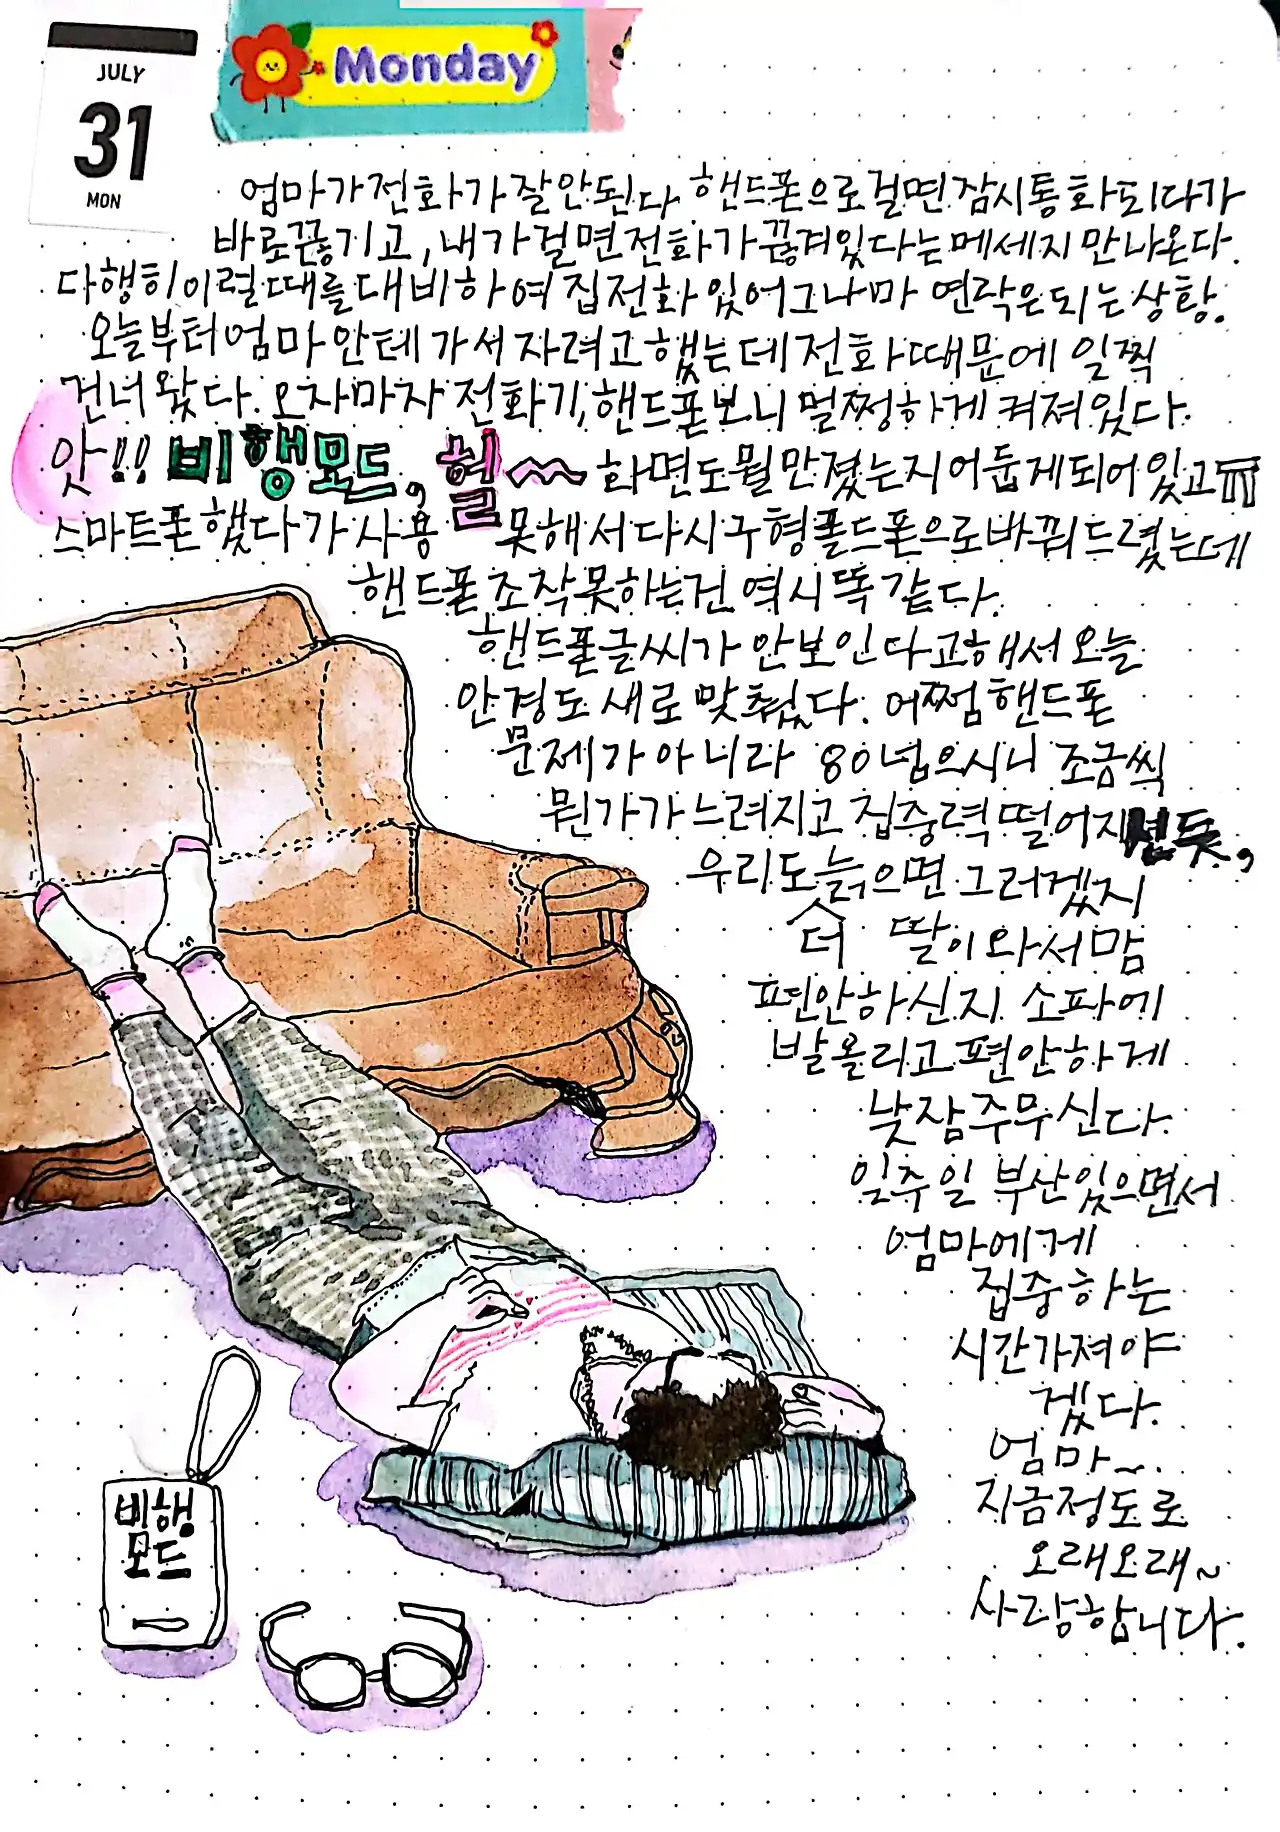 JULY
31
MON
Monday
엄마가 전화가 잘 안된다 핸드폰으로 걸면 잠시 통화되다가
바로 끊기고, 내가 걸면 전화가 끊겨있다는 메세지만 나온다.
다행히 이럴때를 대비하여 집전화 있어 그나마 연락은 되는 상황.
오늘부터 엄마 안테 가서 자려고 했는데 전화때문에 일찍
건너 왔다. 오자마자 전화기, 핸드폰 보니 멀쩡하게 켜져있다.
앗!! 비행모드, 헐 화면도 뭘 만졌는지 어둡게 되어 있고 ㅠ
스마트폰 했다가 사용 못해서 다시 구형폴드폰으로 바꿔드렸는데
핸드폰 조작 못하는건 역시 똑같다.
핸드폰글씨가 안보인다고해서 오늘
안경도 새로 맞췄다. 어쩜 핸드폰
문제가 아니라 80넘으시니 조금씩
뭔가가 느려지고 집중력 떨어지신듯,
우리도 늙으면 그러겠지
더 딸이 와서 맘
편안하신지 소파에
발 올리고 편안하게
낮잠 주무신다.
일주일 부산있으면서
엄마에게
집중하는
시간가져야
겠다.
엄마~.
지금정도로
오래오래~
사랑합니다.
비행
모드